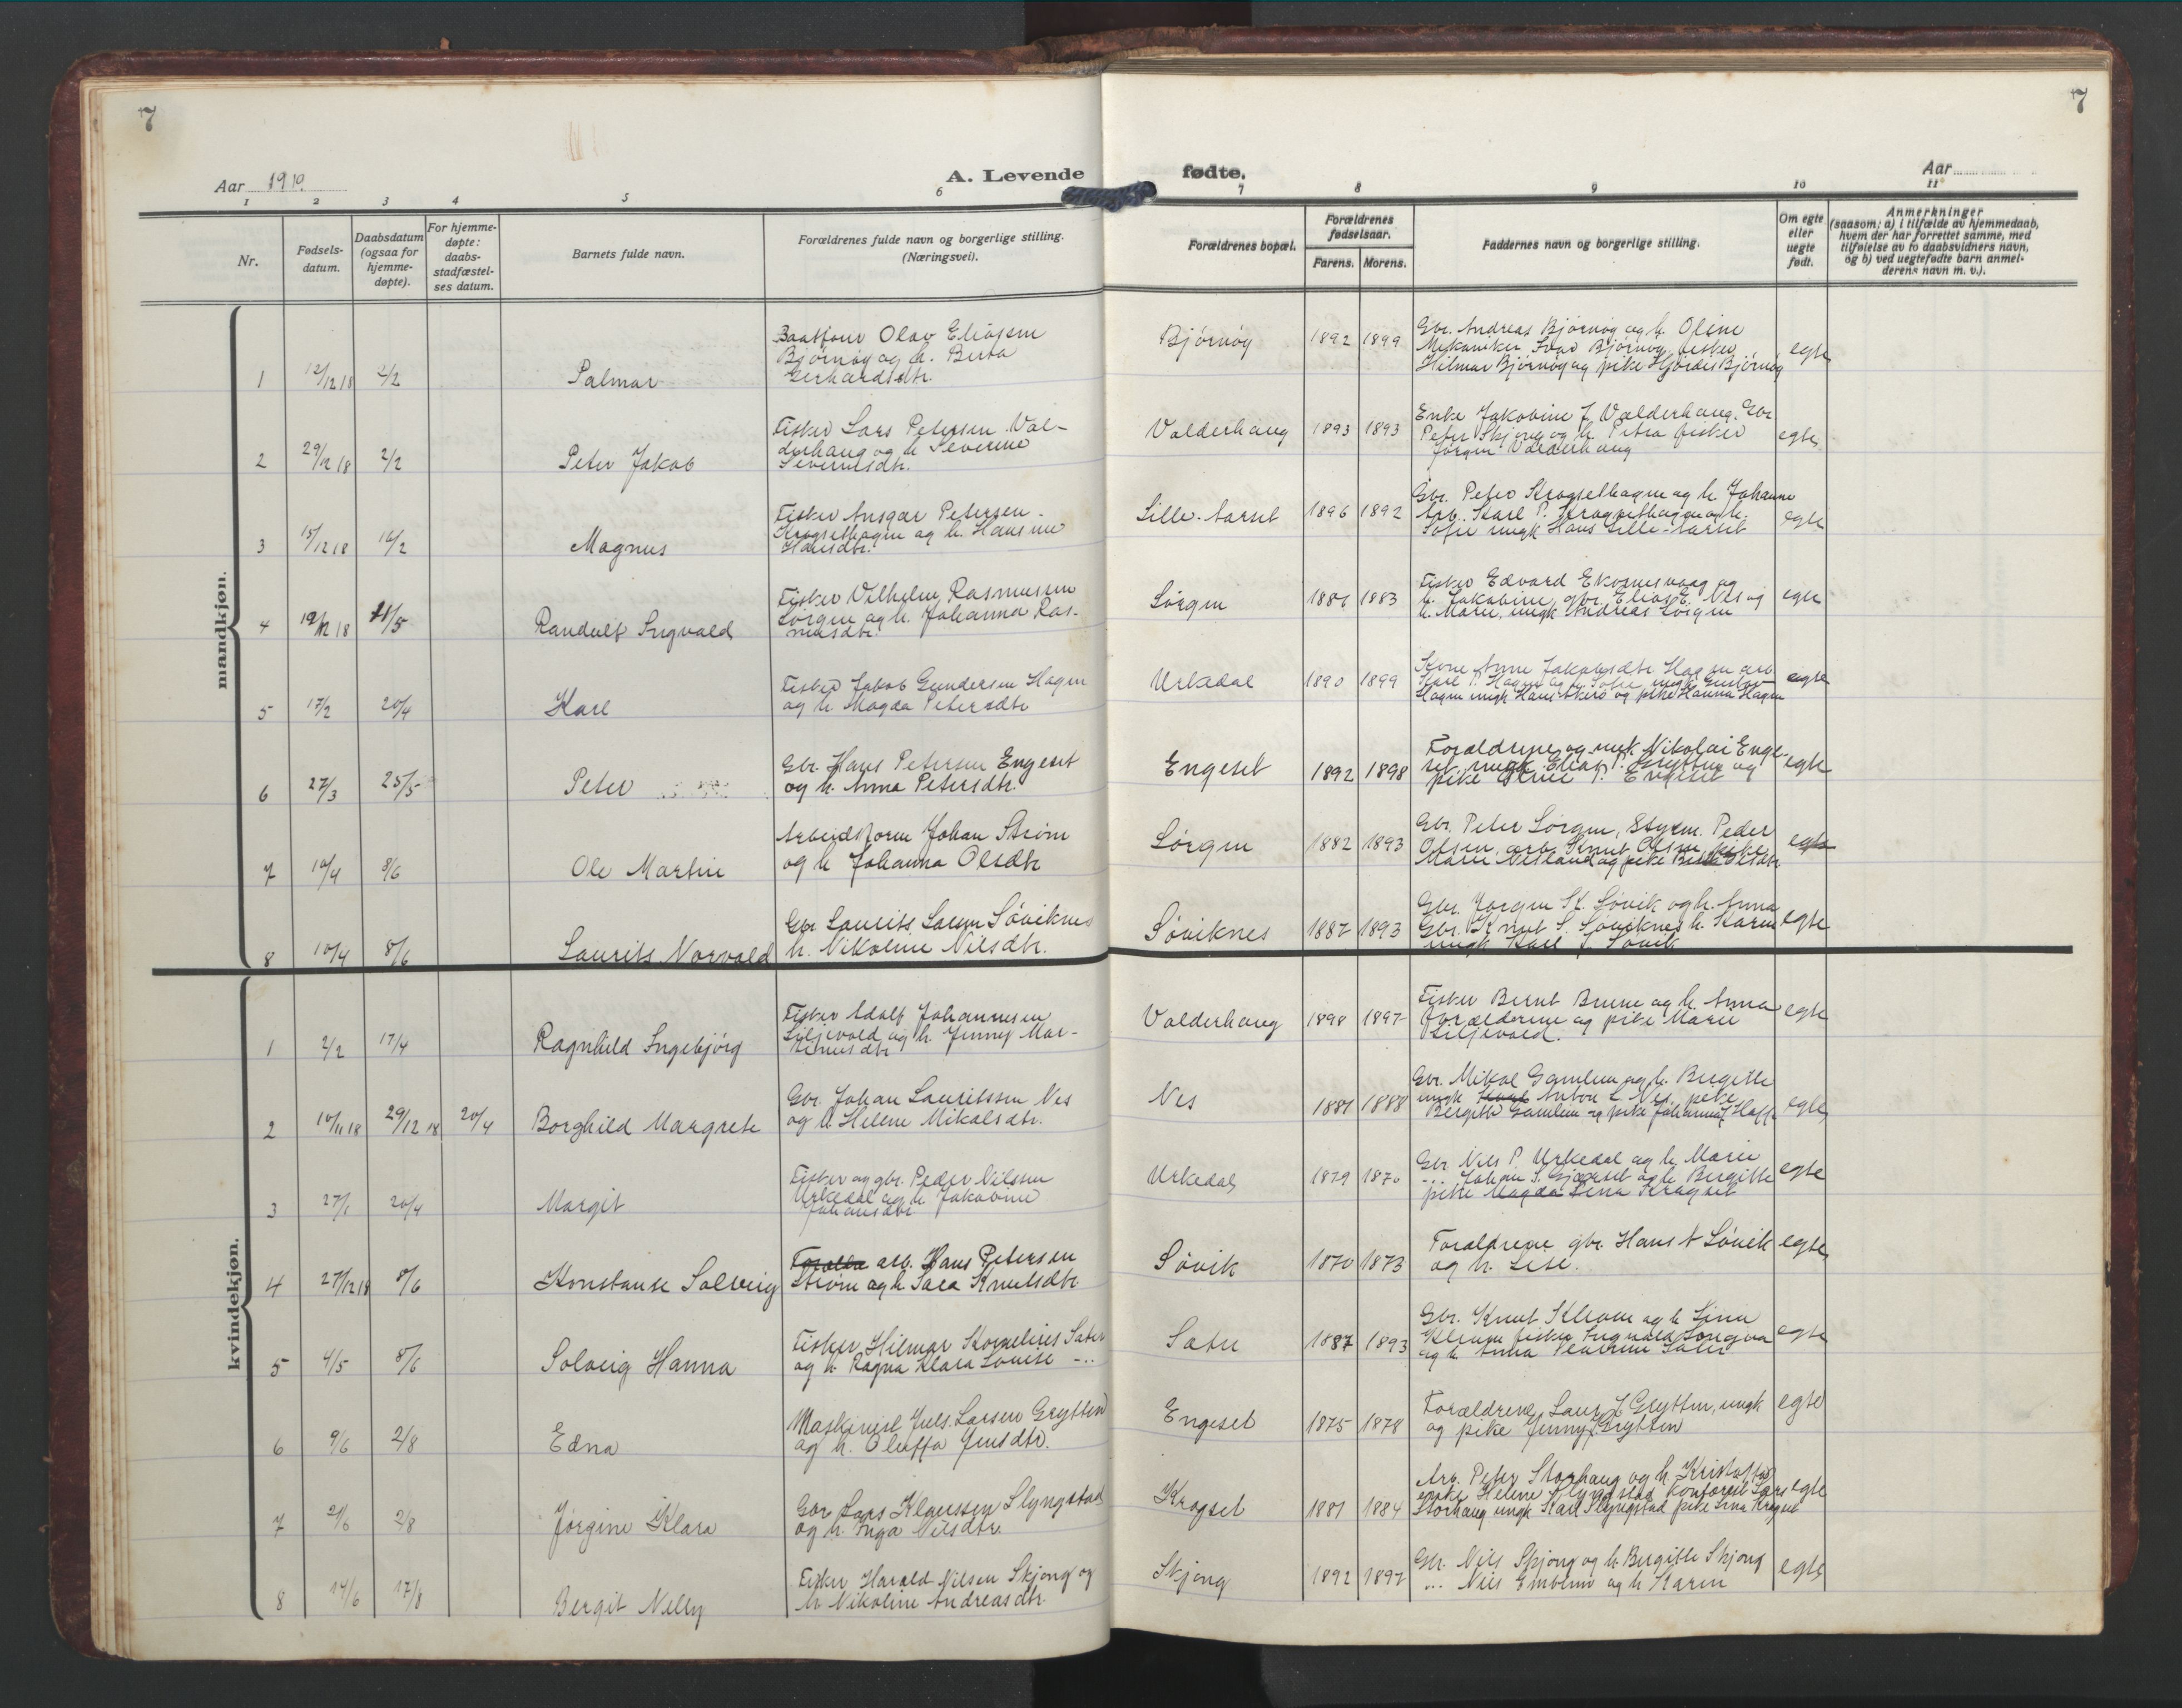 7
7
Aar 1919.
A. Levende fødte.
Aar
1 2 3 4 5 6 7 8 9 10 11
Nr.
Fødsels-
datum.
Daabsdatum
(ogsaa for
hjemme-
døpte).
For hjemme-
døpte:
daabs-
stadfæstel-
ses datum.
Barnets fulde navn.
Forældrenes fulde navn og borgerlige stilling.
(Næringsvei).
Forældrenes bopæl.
Forældrenes
fødselsaar.
Farens. Morens.
Faddernes navn og borgerlige stilling.
Om egte
eller
uegte
født.
Anmerkninger
(saasom: a) i tilfælde av hjemmedaab,
hvem der har forrettet samme, med
tilføielse av to daabsvidners navn,
og b) ved uegtefødte barn anmel-
derens navn m. v.).
mandkjøn.
1 12/12 18 2/2 Palmar
Baatfører Olav Eliassen
Bjørnøy og h. Berta
Gerhardsdtr.
Bjørnøy 1892 1899
Gbr. Andreas Bjørnøy og h. Oline
Mekaniker Ivar Bjørnøy, fisker
Hilmar Bjørnøy og pike Hjørdis Bjørnøy
egte
2 29/12 18 2/2 Peter Jakob
Fisker Lars Petersen Val-
derhaug og h. Severine
Severinsdtr.
Valderhaug 1893 1893
Enke Jakobine J. Valderhaug. Gbr
Peter Skjong og h. Petra fisker
Jørgen Valderhaug
egte
3 15/12 18 16/2 Magnus
Fisker Ansgar Petersen
Krogsethagen og h. Hansine
Hansdtr.
Lille-Aarset 1896 1892
Gbr. Peter Krogsethagen og h. Johanne
Arb. Karl P. Krogsethagen og h.
Sofie ungk Hans Lille-Aarset
egte
4 19/12 18 11/5 Randulf Ingvald
Fisker Vilhelm Rasmussen
Sørgen og h. Johanna Ras-
musdtr.
Sørgen 1881 1883
Fisker Edvard Ekornesvaag og
h. Jakobine, gbr. Elias E. Nes og
h. Marie, ungk Andreas Sørgen
egte
5 17/2 20/4 Karl
Fisker Jakob Gundersen Hagen
og h. Magda Petersdtr
Urkedal 1890 1899
Kone Anne Jakobsdtr. Hagen arb
Karl P. Hagen og h. Sofie ungk Gustav
Hagen ungk Hans Akerø og pike Hanna Hagen
egte
6 27/3 25/5 Peter
Gbr. Hans Petersen Engeset
og h. Anna Petersdtr.
Engeset 1892 1898
Forældrene og ungk. Nikolai Enge-
set, ungk Elias P. Grytten og
pike Oline P. Engeset
egte
7 10/4 8/6 Ole Martin
Arbeidsform Johan Strøm
og h Johanna Olsdtr
Sørgen 1882 1893
Gbr. Peter Sørgen, Styrm. Peder
Olsen, arb. Knut Olsen, pike
Marie Nesland og pike Berta Olsdtr
egte
8 10/4 8/6 Laurits Norvald
Gbr Laurits Larsen Søviknes
h. Nikoline Nilsdtr.
Søviknes 1887 1893
Gbr. Jørgen K. Søvik og h. Anna
Gbr. Knut L. Søviknes h. Karen
ungk Karl J. Søvik
egte
kvindekjøn.
1 2/2 17/4 Ragnhild Ingebjørg
Fisker Adolf Johannesen
Liljevold og h. Jenny Mar-
tinusdtr
Valderhaug 1898 1897
Fisker Bernt Brune og h. Anna
forælderene og pike Marie
Liljevold.
egte
2 10/11 18 29/12 18 20/4 Borghild Margrete
Gbr. Johan Lauritssen Nes
og h Helene Mikalsdtr.
Nes 1881 1888
Gbr. Mikal Gamlem og h. Birgitte
ungk Anton L Nes, pike
Bergitte Gamlem og pike Johanna J Hoff
egte
3 27/1 20/4 Margit
Fisker og gbr. Peder Nilsen
Urkedal og h. Jakobine
Johansdtr.
Urkedal 1879 1870
Gbr. Nils P. Urkedal og h. Marie
-.- Johan S. Gjærset og h. Bergitte
pike Magda Lina Kragset
egte
4 27/12 18 8/6 Konstanse Solveig
arb. Hans Petersen
Strøm og h. Sara Knutsdtr
Søvik 1870 1873
Forældrene gbr. Hans A Søvik
og h. Lise.
egte
5 4/5 8/6 Solveig Hanna
Fisker Hilmar Kornelius Sæter
og h. Ragna Klara Louise -..
Sæter 1887 1893
Gbr. Knut Klevem og h Lina
Klevem fisker Ingvald Longva
og h. Anna Severine Sæter
egte
6 9/6 2/8 Edna
Maskinist Juls. Larsen Grytten
og h. Oluffa Jensdtr.
Engeset 1875 1878
Forældrene, Laur. J Grytten, ungk
og pike Jenny Grytten
egte
7 2/6 2/8 Jørgine Klara
Gbr Lars Klaussen Slyngstad
og h. Inga Nilsdtr.
Krogset 1881 1884
Arb. Peter Storhaug og h. Kristoffa
enke Helene Slyngstad kontorist Lars
Storhaug ungk Karl Slyngstad pike Lina Krogset
egte
8 14/6 17/8 Bergit Nelly
Fisker Harald Nilsen Skjong og
h Nikoline Andreasdtr.
Skjong 1892 1897
Gbr. Nils Skjong og h. Birgitte Skjong
-..- Nils Emblem og h Karen
egte